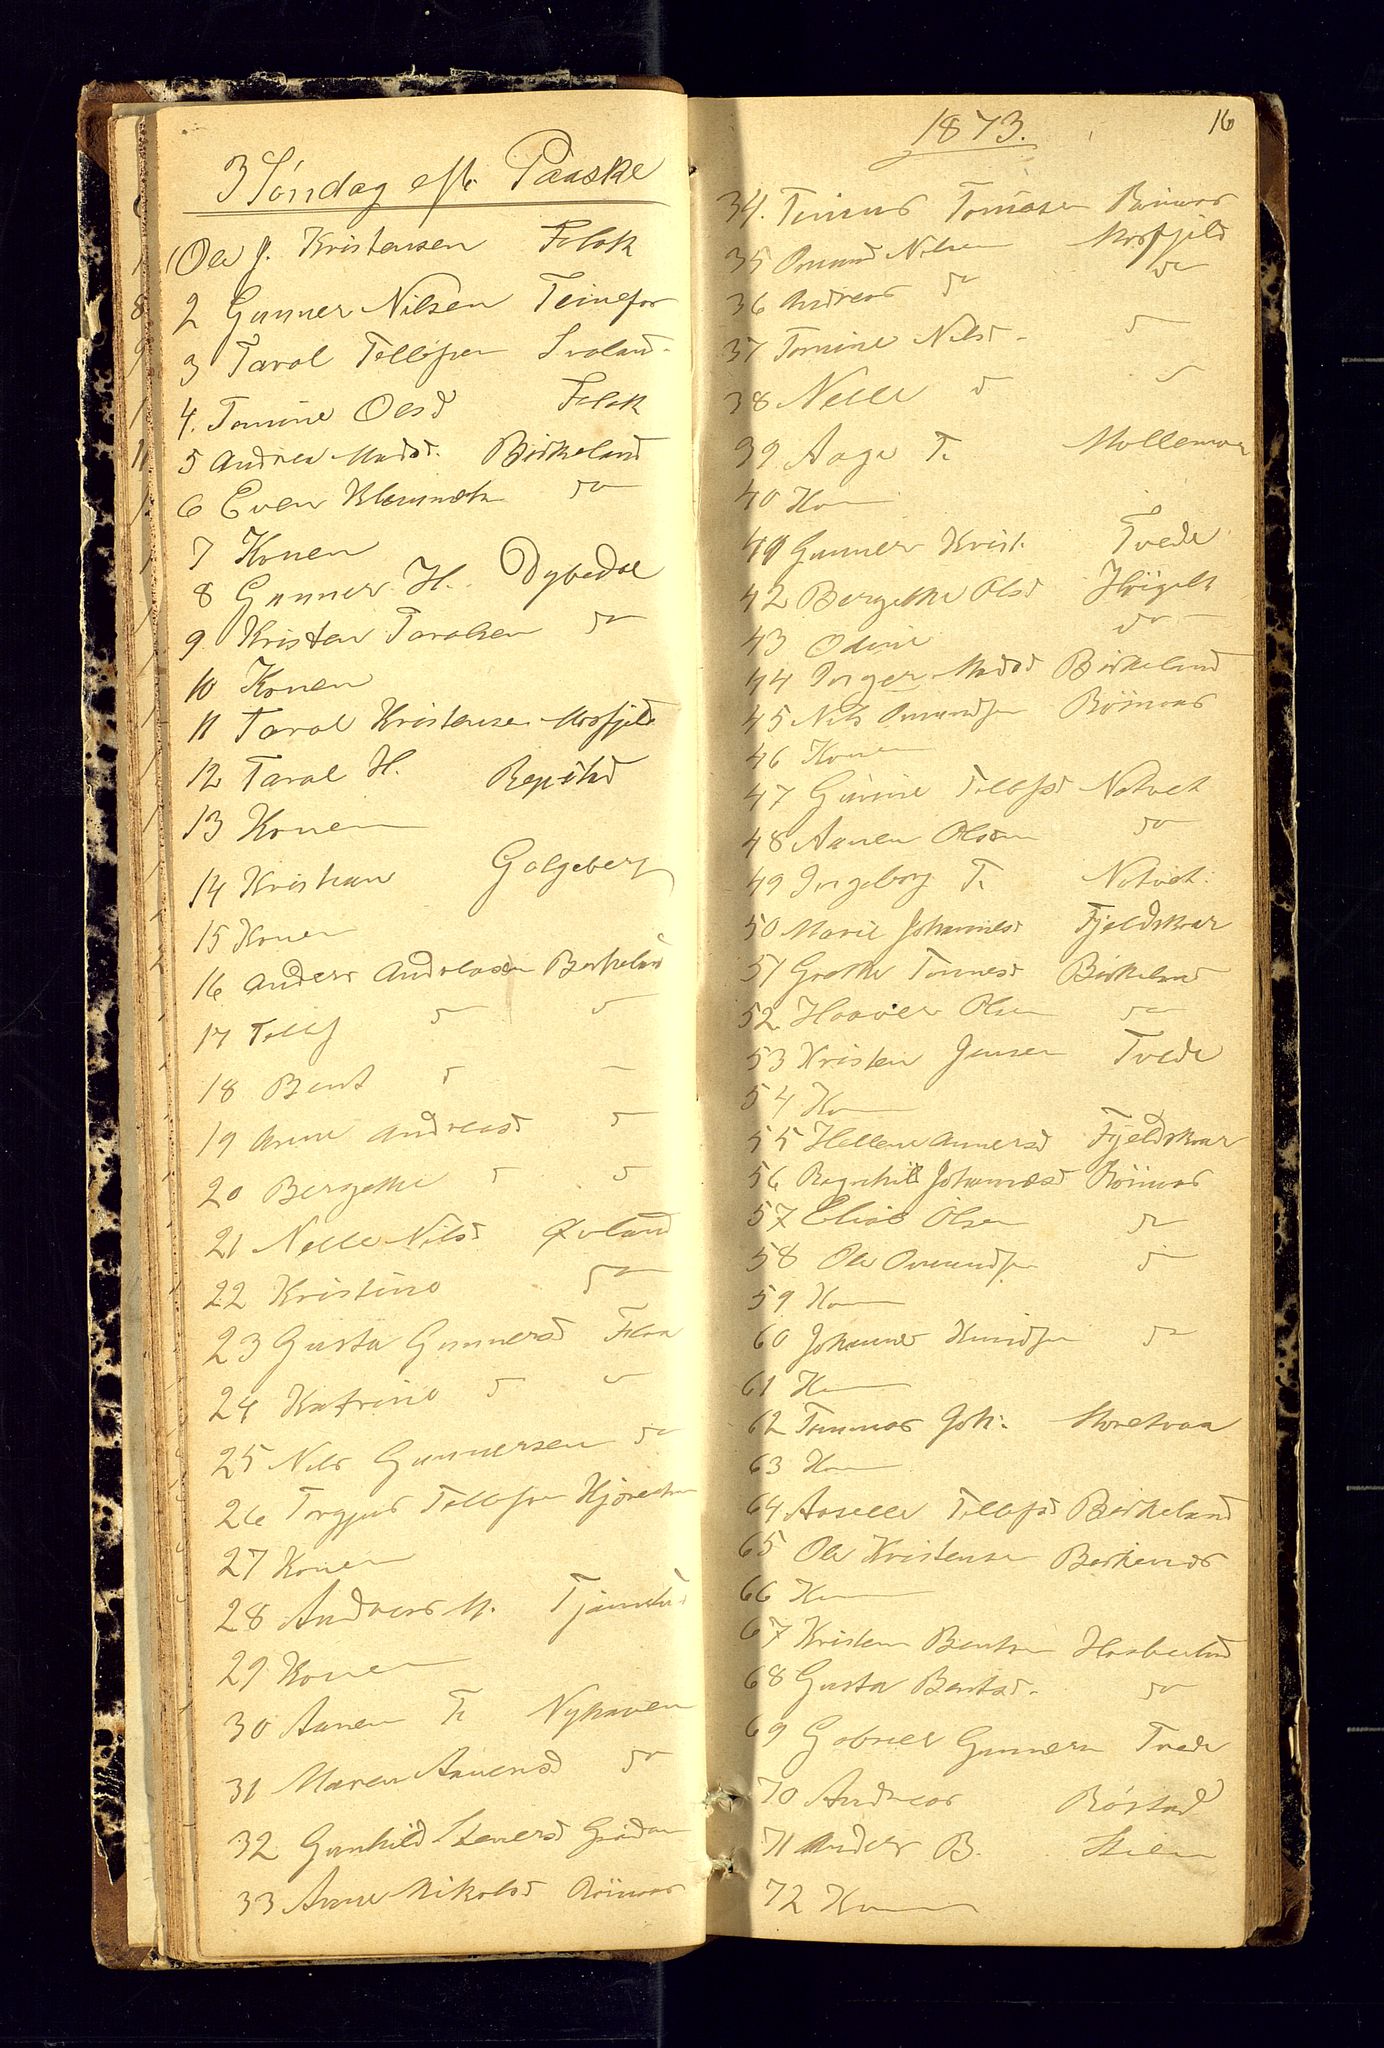 3 Søndag eft. Paaske
1 Ole J. Kristensen Flak
2 Gunner Nilsen Teinefos
3 Tarol Tellefsen Svaland
4. Tomine Olsd Flak
5 Andrea Madsd. Birkeland
6 Even Klemmets do
7 Konen
8 Gunner H. Dybedal
9 Kristen Taralsen do
10 Konen
11 Tarol Kristensen Mosfjeld
12 Tarol H. Repstad
13 Konen
14 Kristian Golgeberg
15 Konen
16 Anders Andreasen Berkeland
17 Tellef do do
18 Bent do
19 Anne Andreasd do
20 Bergethe do do
21 Nelle Nilsd Øvland
22 Kristine do
23 Gusta Gunnersd Flaa
24 Katrine do do
25 Nils Gunnersen do
26 Torgjus Tellefsen
27 Konen
28 Andreas M.
29 Konen
30 Aanen T. Nyhaven
31 Maren Aanensd do
32 Gunhild Stenersd
33 Anne Nikolsd Röinaas
1873.
16
34. Tomas Tomasen Röinaas
35 Omund Nilsen Mosfjeld
36 Andreas do do
37 Tomine Nilsd. do
38 Nelle do do
39 Aage T. Mollemoen
40 Kon
41 Gunner Krist. Tvede
42 Bergethe Olsd
43 Odine do
44 Inger Madsd Birkeland
45 Nils Omundsen Röinaas
46 Konen
47 Gunine Tellefsd Natvet
48 Aanen Olsen do
49 Ingeborg T. Natvet.
50 Marie Johannesd Fjeldskaar
51 Grethe Tonnesd Birkeland
52 Haaver Olsen do
53 Kristen Jensen Tvede
54 Kon
55 Hellene Annersd Fjeldskaar
56 Ragnhild Johannesd Röinaas
57 Elias Olsen do
58 Ole Omundsen do
59 Kon
60 Johannes Knudsen do
61 Kon
62 Tommas Joh. Moretvaa
63 Kon
64 Aaselle Tellefsd Berkeland
65 Ole Kristensen Berkenes
66 Kon
67 Kristen Bentsen
68 Gusta Bentsd. do
69 Gabriel Gunners Tvede
70 Andreas Röstad
71 Anders B. Stien
72 Kon